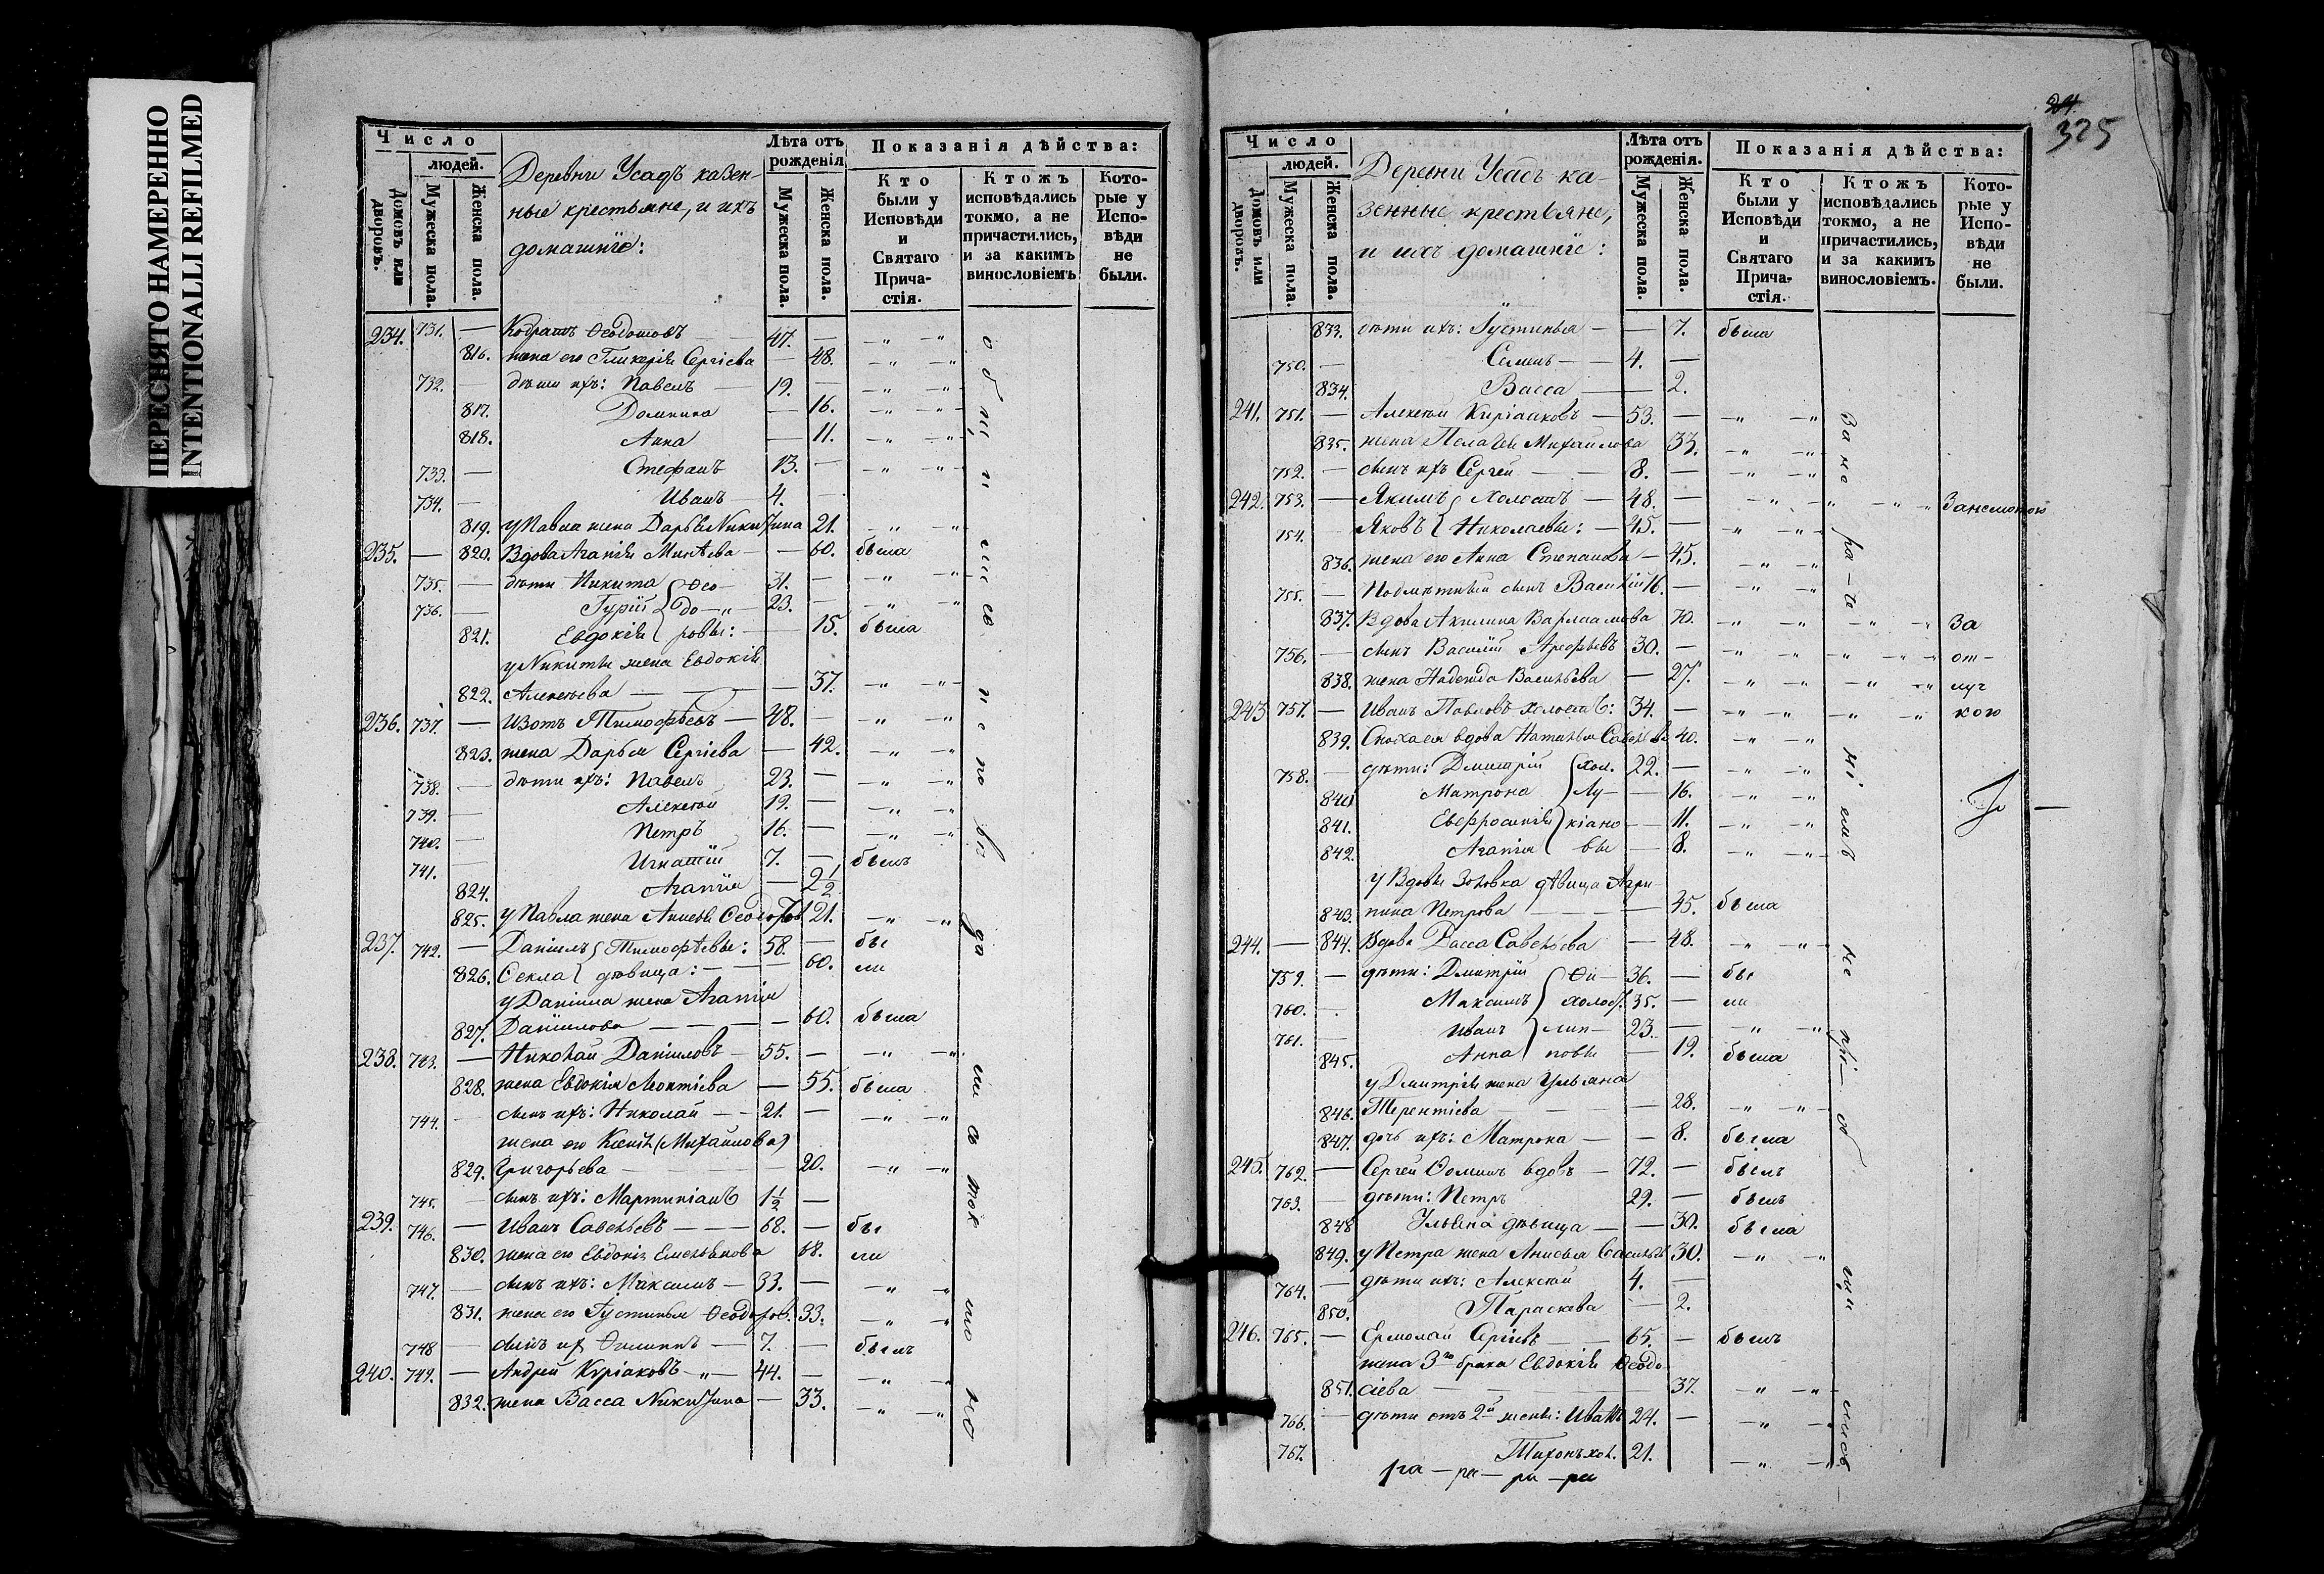 ПЕРЕСНЯТО НАМЕРЕННО
INTENTIONALLI REFILMED
Число
людей.
Домовъ или дворовъ.
Мужеска пола.
Женска пола.
Деревни Усадъ казен-
ные крестьяне, и ихъ
домашніе:
Лѣта отъ рожденія
Мужеска пола.
Женска пола.
Показанія дѣйства:
Кто были у Исповѣди и Святаго Прича-стія.
Ктожъ исповѣдались токмо, а не причастились, и за какимъ винословіемъ
Кото-рые у Испо-вѣди не были.
234. 731. — Кодратъ Ѳеодотовъ 47. —
816. жена его Гликерія Сергіева — 48.
732. — дѣти ихъ: Павелъ — 19. —
817. Домнина — 16.
818. Анна — 11.
733. — Стефанъ 13. —
734. — Иванъ 4. —
819. у Павла жена Дарья Никитина 21.
235. — 820. Вдова Агапія — 60. была
735. — дѣти Никита Ѳео- 31. —
736. — Гурій до- 23. —
821. Евдокія ровы: — 15. была
у Никиты жена Евдокія
822. Алексѣева — 37.
236. 737. — Изотъ Тимофѣевъ — 48. —
823. жена Дарья Сергіева — 42.
738. — дѣти ихъ: Павелъ 23. —
739. — Алексѣй 19. —
740. — Петръ 16. —
741. — Игнатій 7. — былъ
824. Агапія — 2 1/2
825. у Павла жена Ѳеодоров. 21.
237. 742. — Даніилъ Тимофѣевы: 58. — бы
826. Ѳекла дѣвица: — 60. ли
у Даніила жена Агапія
827. Даніилова — 60. была
238. 743. — Николай Даніиловъ — 55. —
828. жена Евдокія Леонтіева — 55. была
744. — сынъ ихъ: Николай — 21. —
жена его Ксенія (Михайлова)
829. Григорьева — 20.
745. — сынъ ихъ: Мартиніанъ 1 1/2 —
239. 746. — Иванъ Савельевъ — 68. — бы
830. жена его Евдокія Емельянова 68. ли
747. — сынъ ихъ: Максимъ — 33. —
831. жена его Густинья Ѳеодоров. 33.
748 — сынъ их Филиппъ — 7. — былъ
240. 749. — Андрей Киріаковъ — 44. —
832. жена Васса Никитина — 33.
24
325
Число
людей.
Домовъ или дворовъ.
Мужеска пола.
Женска пола.
Деревни Усадъ ка-
зенные крестьяне,
и ихъ домашніе:
Лѣта отъ рожденія.
Мужеска пола.
Женска пола.
Показанія дѣйства:
Кто были у Исповѣди и Святаго Прича-стія.
Ктожъ исповѣдались токмо, а не причастились, и за какимъ винословіемъ.
Кото-рые у Испо-вѣди не были.
833. дѣти ихъ: Густинья — — 7. была
750. — Семенъ — 4. —
834. Васса — 2.
241. 751. — Алексѣй Киріаковъ — 53. —
835. жена Пелагія Михайлова 33.
752. — сынъ ихъ Сергей — 8. —
242. 753. — Якимъ холостъ — 48. —
754. Яковъ Николаевы: — 45. —
836. жена его Анна Степанова — 45.
755. — сынъ Василій 16. —
837. Вдова Акилина Варлаамова 70. За
756. — сынъ Василій Арефьевъ 30. — от-
838. жена Надежда Васильева — 27. луч
243 757. — Иванъ Павловъ холостъ: 34. — кою
839. Сноха ея вдова Наталья 40.
758. — дѣти: Дмитрій хол. 22. —
840 Матрона Лу- — 16.
841. Евфросинія кіано — 11.
842. Агапія вы — 8.
у Вдовы Золовка дѣвица Агри-
843. пина Петрова — 45. была
244. — 844. Вдова Васса Савельева — 48.
759. — дѣти: Дмитрій Фи- 36. — бы
760. — Максимъ холост. 35. — ли
761. — Иванъ лип- 23. —
845. Анна повы — 19. была
у Дмитрія жена Ульяна
846. Терентіева — 28.
847. дочь ихъ: Матрона — 8. была
245. 762. — Сергей Ѳоминъ вдовъ — 72. — былъ
763. — дѣти: Петръ 29. — былъ
848 Ульяна дѣвица — — 30. была
849. у Петра жена Анисья 30.
764. — дѣти ихъ: Алексѣй 4. —
850. Параскева — 2.
246. 765. — Ермолай Сергіевъ — 65. — былъ
жена 3го брака Евдокія Ѳеодо
851. сіева — 37.
766. — дѣти отъ 2й жены: Иванъ 24. —
767. Тихонъ хол. 21.